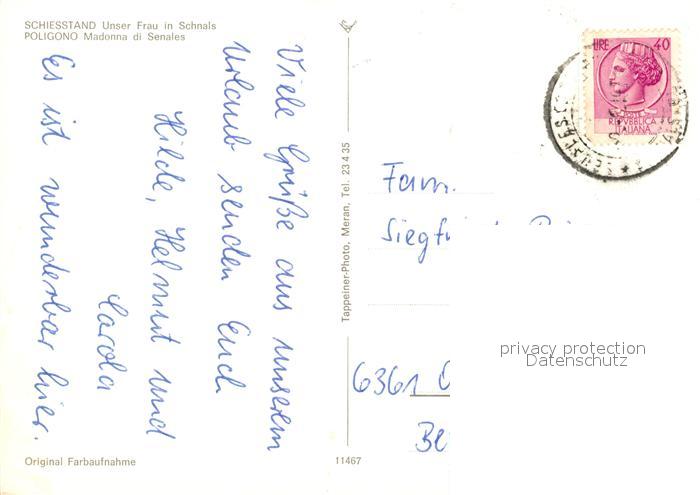 SCHIESSTAND Unser Frau in Schnals
POLIGONO Madonna di Senales
Viele Grüße aus unserem
Urlaub senden Euch
Hilde, Helmut und
Carola
Es ist wunderbar hier.
Original Farbaufnahme
Tappeiner-Photo. Meran, Tel. 23435
11467
LIRE 40
POSTE
REPVBBLICA
ITALIANA
Fam.
6361
privacy protection
Datenschutz